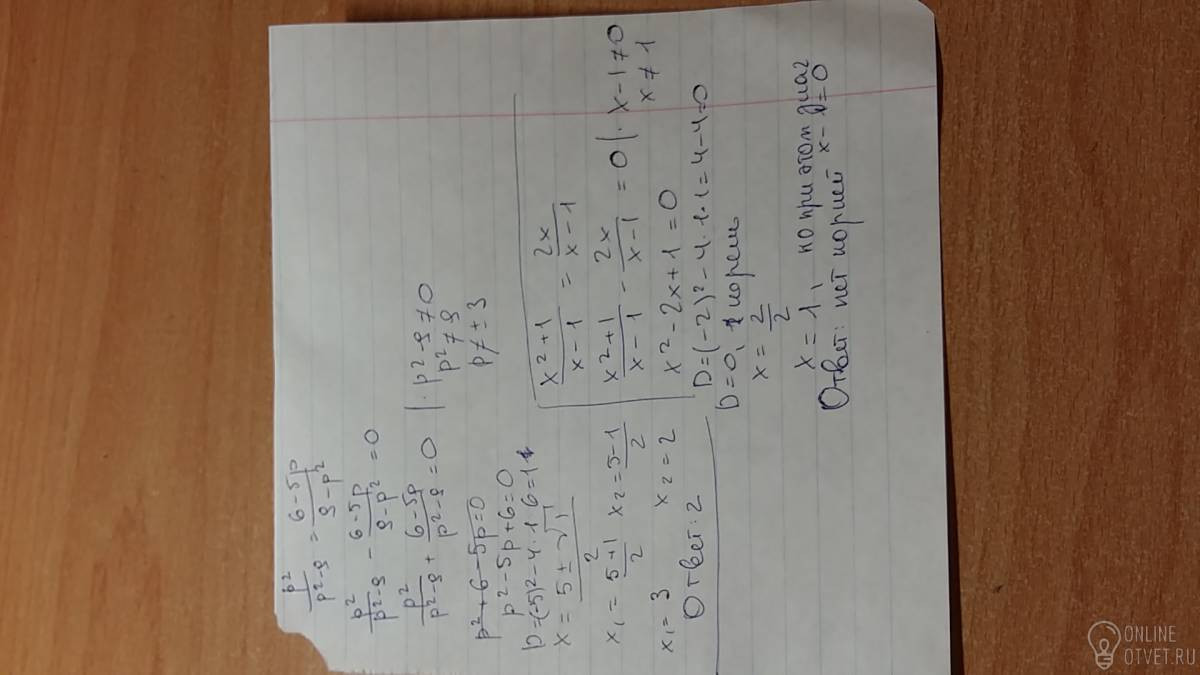 p²/(p²-9) = (6-5p)/(9-p²)
p²/(p²-9) - (6-5p)/(9-p²) = 0
p²/(p²-9) + (6-5p)/(p²-9) = 0 | · p²-9≠0
p²≠9
p≠±3
p²+6-5p=0
p²-5p+6=0
D=(-5)²-4·1·6=1
x = (5±√1)/2
x₁ = (5+1)/2 x₂ = (5-1)/2
x₁=3 x₂=2
Ответ: 2
(x²+1)/(x-1) = 2x/(x-1)
(x²+1)/(x-1) - 2x/(x-1) = 0 | · x-1≠0
x≠1
x²-2x+1=0
D=(-2)²-4·1·1=4-4=0
D=0, 1 корень
x = 2/2
x=1, но при этом знач
x-1=0
Ответ: нет корней
ONLINE
OTVET.RU